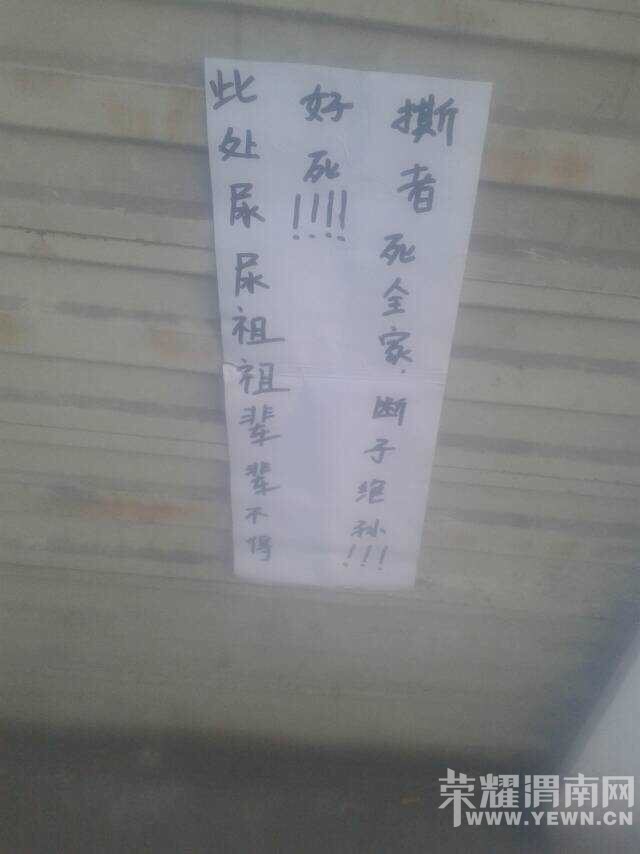 此处尿尿祖祖辈辈不得
好死!!!!
撕者死全家，断子绝孙!!!
荣耀渭南网
WWW.YEWN.CN